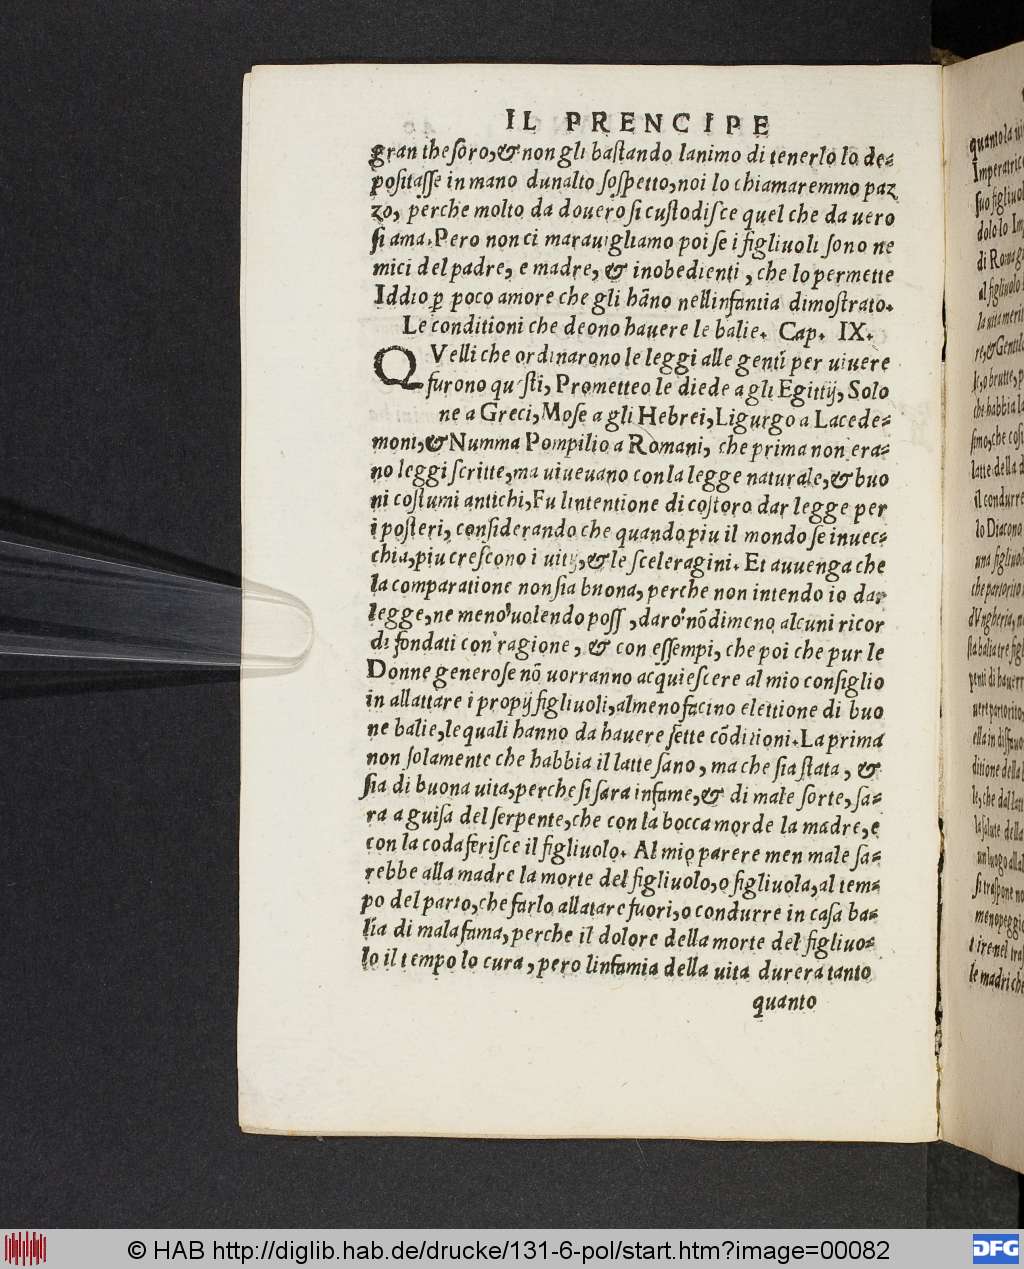 IL PRENCIPE
gran thesoro, & non gli bastando lanimo di tenerlo lo de-
positasse in mano dunalto sospetto, noi lo chiamaremmo paz
zo, perche molto da douero si custodisce quel che da uero
si ama. Pero non ci marauigliamo poi se i figliuoli sono ne
mici del padre, e madre, & inobedienti, che lo permette
Iddio ꝑ poco amore che gli hãno nell infantia dimostrato.
Le conditioni che deono hauere le balie. Cap. IX.
QVelli che ordinarono le leggi alle genti per uiuere
furono qu sti, Prometteo le diede a gli Egittij, Solo
ne a Greci, Mose a gli Hebrei, Ligurgo a Lacede-
moni, & Numma Pompilio a Romani, che prima non era-
no leggi scritte, ma uiueuano con la legge naturale, & buo
ni costumi antichi, Fu lintentione di costoro dar legge per
i posteri, considerando che quando piu il mondo se inuec-
chia, piu crescono i uitij, & le sceleragini. Et auuenga che
la comparatione non sia bnona, perche non intendo io dar
legge, ne meno uolendo poss , daro nõdimeno alcuni ricor
di fondati con ragione, & con essempi, che poi che pur le
Donne generose nõ uorranno acquiescere al mio consiglio
in allattare i propij figliuoli, almeno facino elettione di buo
ne balie, le quali hanno da hauere sette cõditioni. La prima
non solamente che habbia il latte sano, ma che sia stata, &
sia di buona uita, perche si sara infame, & di male sorte, sa-
ra a guisa del serpente, che con la bocca morde la madre, e
con la coda ferisce il figliuolo. Al mio parere men male sa-
rebbe alla madre la morte del figliuolo, o figliuola, al tem-
po del parto, che farlo allatare fuori, o condurre in casa ba-
lia di mala fama, perche il dolore della morte del figliuo-
lo il tempo lo cura, pero linfamia della uita durera tanto
quanto
quanto la ui
Imperatrice
suo figliuol
dolo lo Im
di Roma g
al figliuolo
la uita meri
re, & Gentil
se, o brutte, p
che habbia la
simo, che cos
latte della d
il condurre
lo Diacono
una figliuol
che partorito
dVngheria, n
sta balia tre figl
penti di hauerr
uere partorito
ella in disfauo
ditione della
le, che dal latt
la salute della
un luogo alla
si traspone no
meno peggio
le madri che
© HAB http://diglib.hab.de/drucke/131-6-pol/start.htm?image=00082
DFG